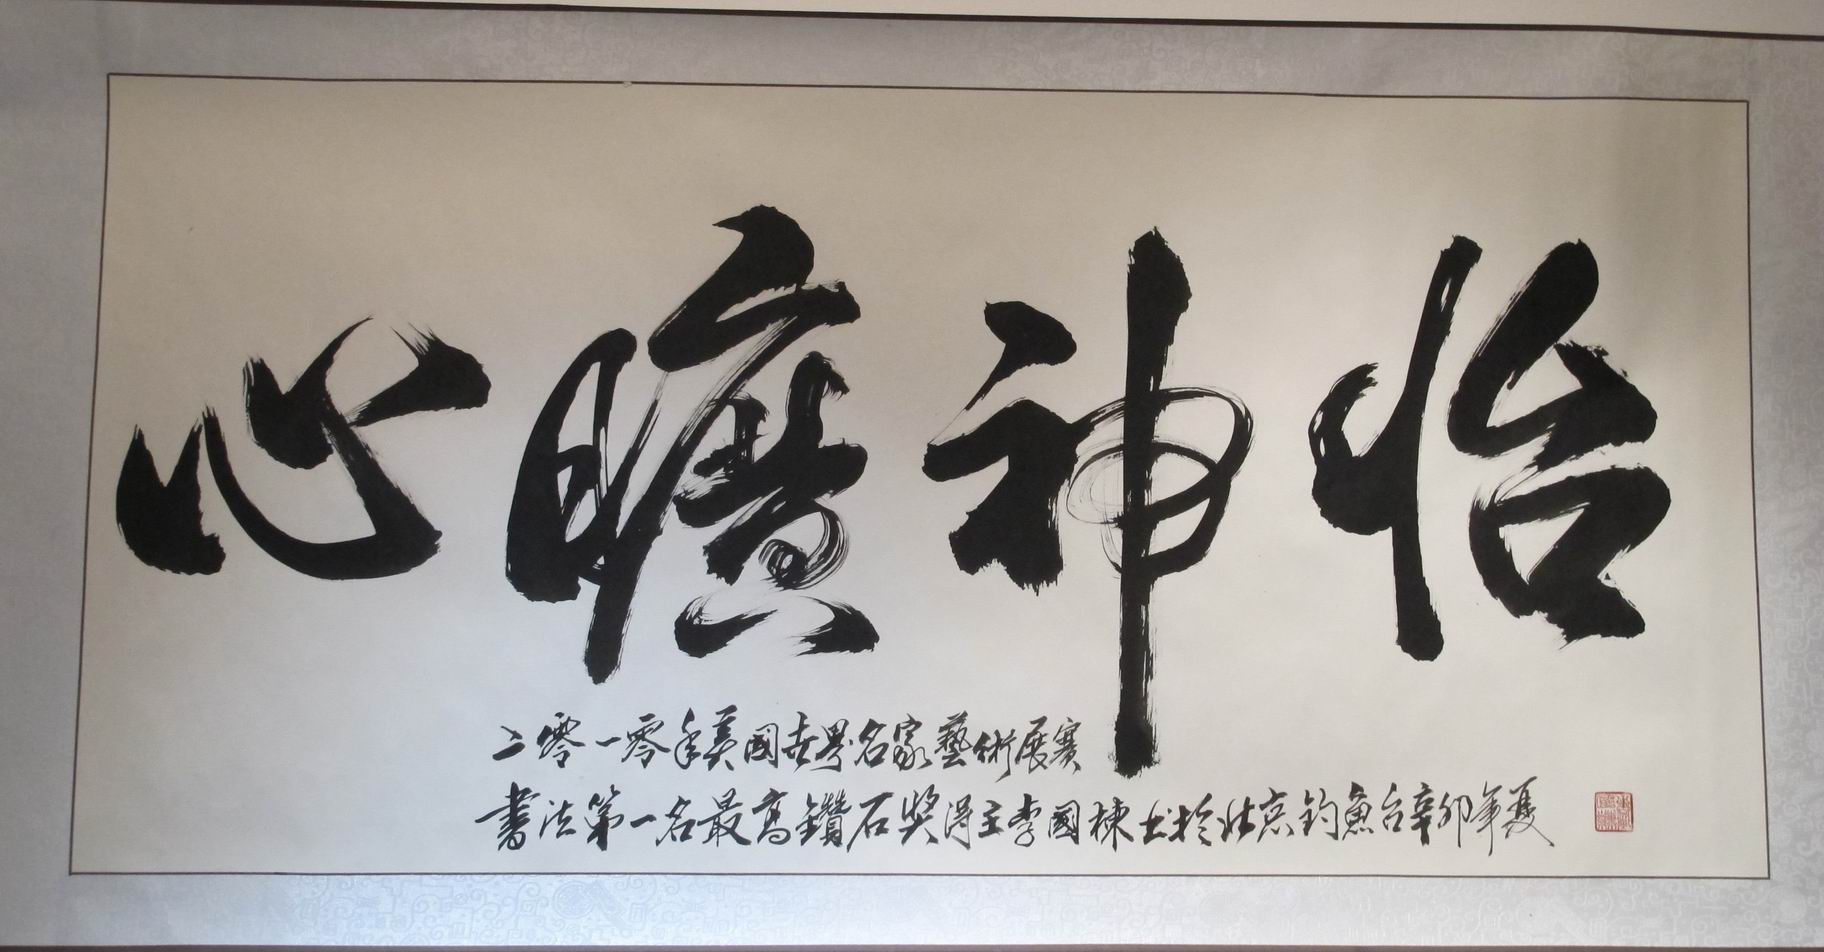 心曠神怡
二零一零年美國世界名家藝術展賽
書法第一名最高鑽石奖得主李國棟书於北京釣魚台辛卯年夏